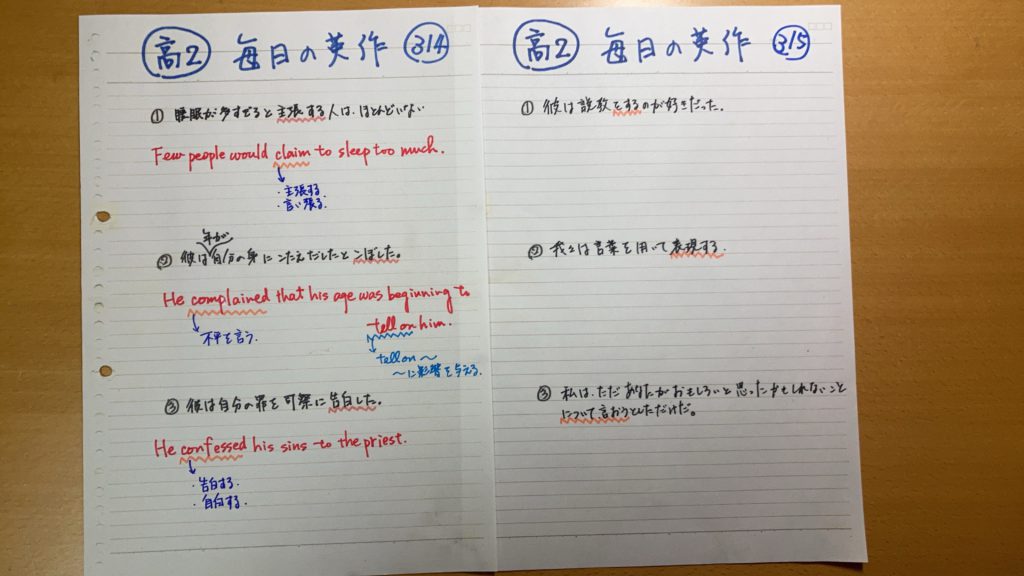 高2 毎日の英作 314
① 睡眠が多すぎると主張する人は、ほとんどいない
Few people would claim to sleep too much.
・主張する
・言い張る
年が
② 彼は自分の身にこたえだしたとこぼした。
He complained that his age was beginning to
tell on him.
不平を言う.
tell on 〜
〜に影響を与える.
③ 彼は自分の罪を司祭に告白した。
He confessed his sins to the priest.
・告白する.
・自白する.
高2 毎日の英作 315
① 彼は説教をするのが好きだった.
② 我々は言葉を用いて表現する.
③ 私は、ただあなたがおもしろいと思ったかもしれないこと
について言おうとしただけだ。